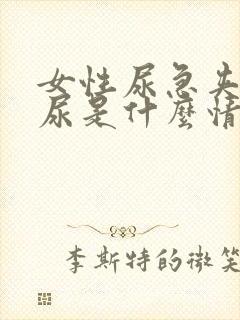 女性尿急失
尿是什麼情
李斯特的微笑